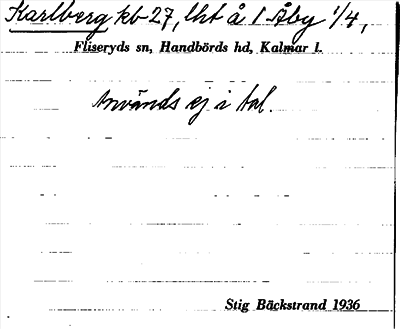 Karlberg kb 27, lht å 1 Åby 1/4,
Fliseryds sn, Handbörds hd, Kalmar l.
Används ej i tal.
Stig Bäckstrand 1936